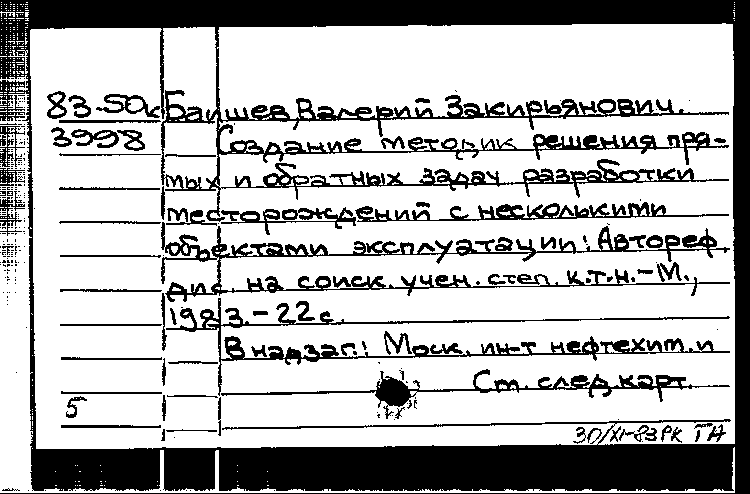 83-50к Баишев, Валерий Закирьянович.
3998 Создание методик решения пря-
мых и обратных задач разработки
месторождений с несколькими
объектами эксплуатации: Автореф.
дис. на соиск. учен. степ. к.т.н.-М.,
1983.-22с.
В надзаг.: Моск. ин-т нефтехим. и
См. след. карт.
5
30/XI-83 РК ТА